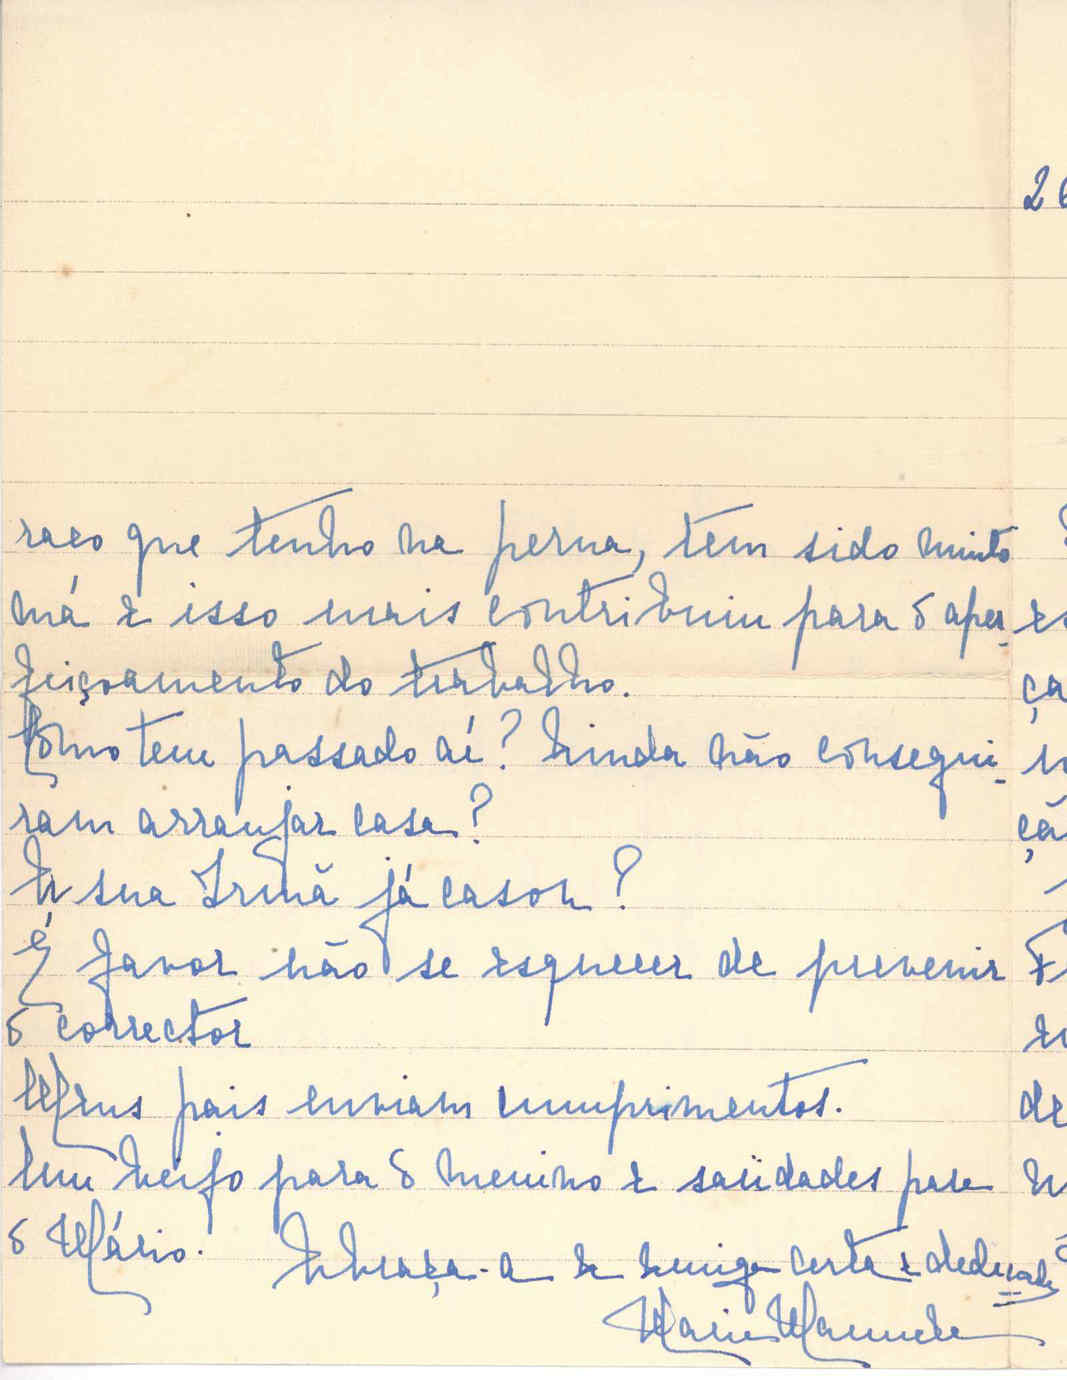 raco que tenho na perna, tem sido muito
má e isso mais contribuiu para o aper-
feiçoamento do trabalho.
Como tem passado aí? Ainda não consegui-
ram arranjar casa?
A sua Irmã já casou?
É favor não se esquecer de prevenir
o corrector
Meus pais enviam cumprimentos.
Um beijo para o menino e saüdades para
o Mário.
Abraça-a a Amiga certa e dedicada
Maria Manuela
26
ça
çã
de